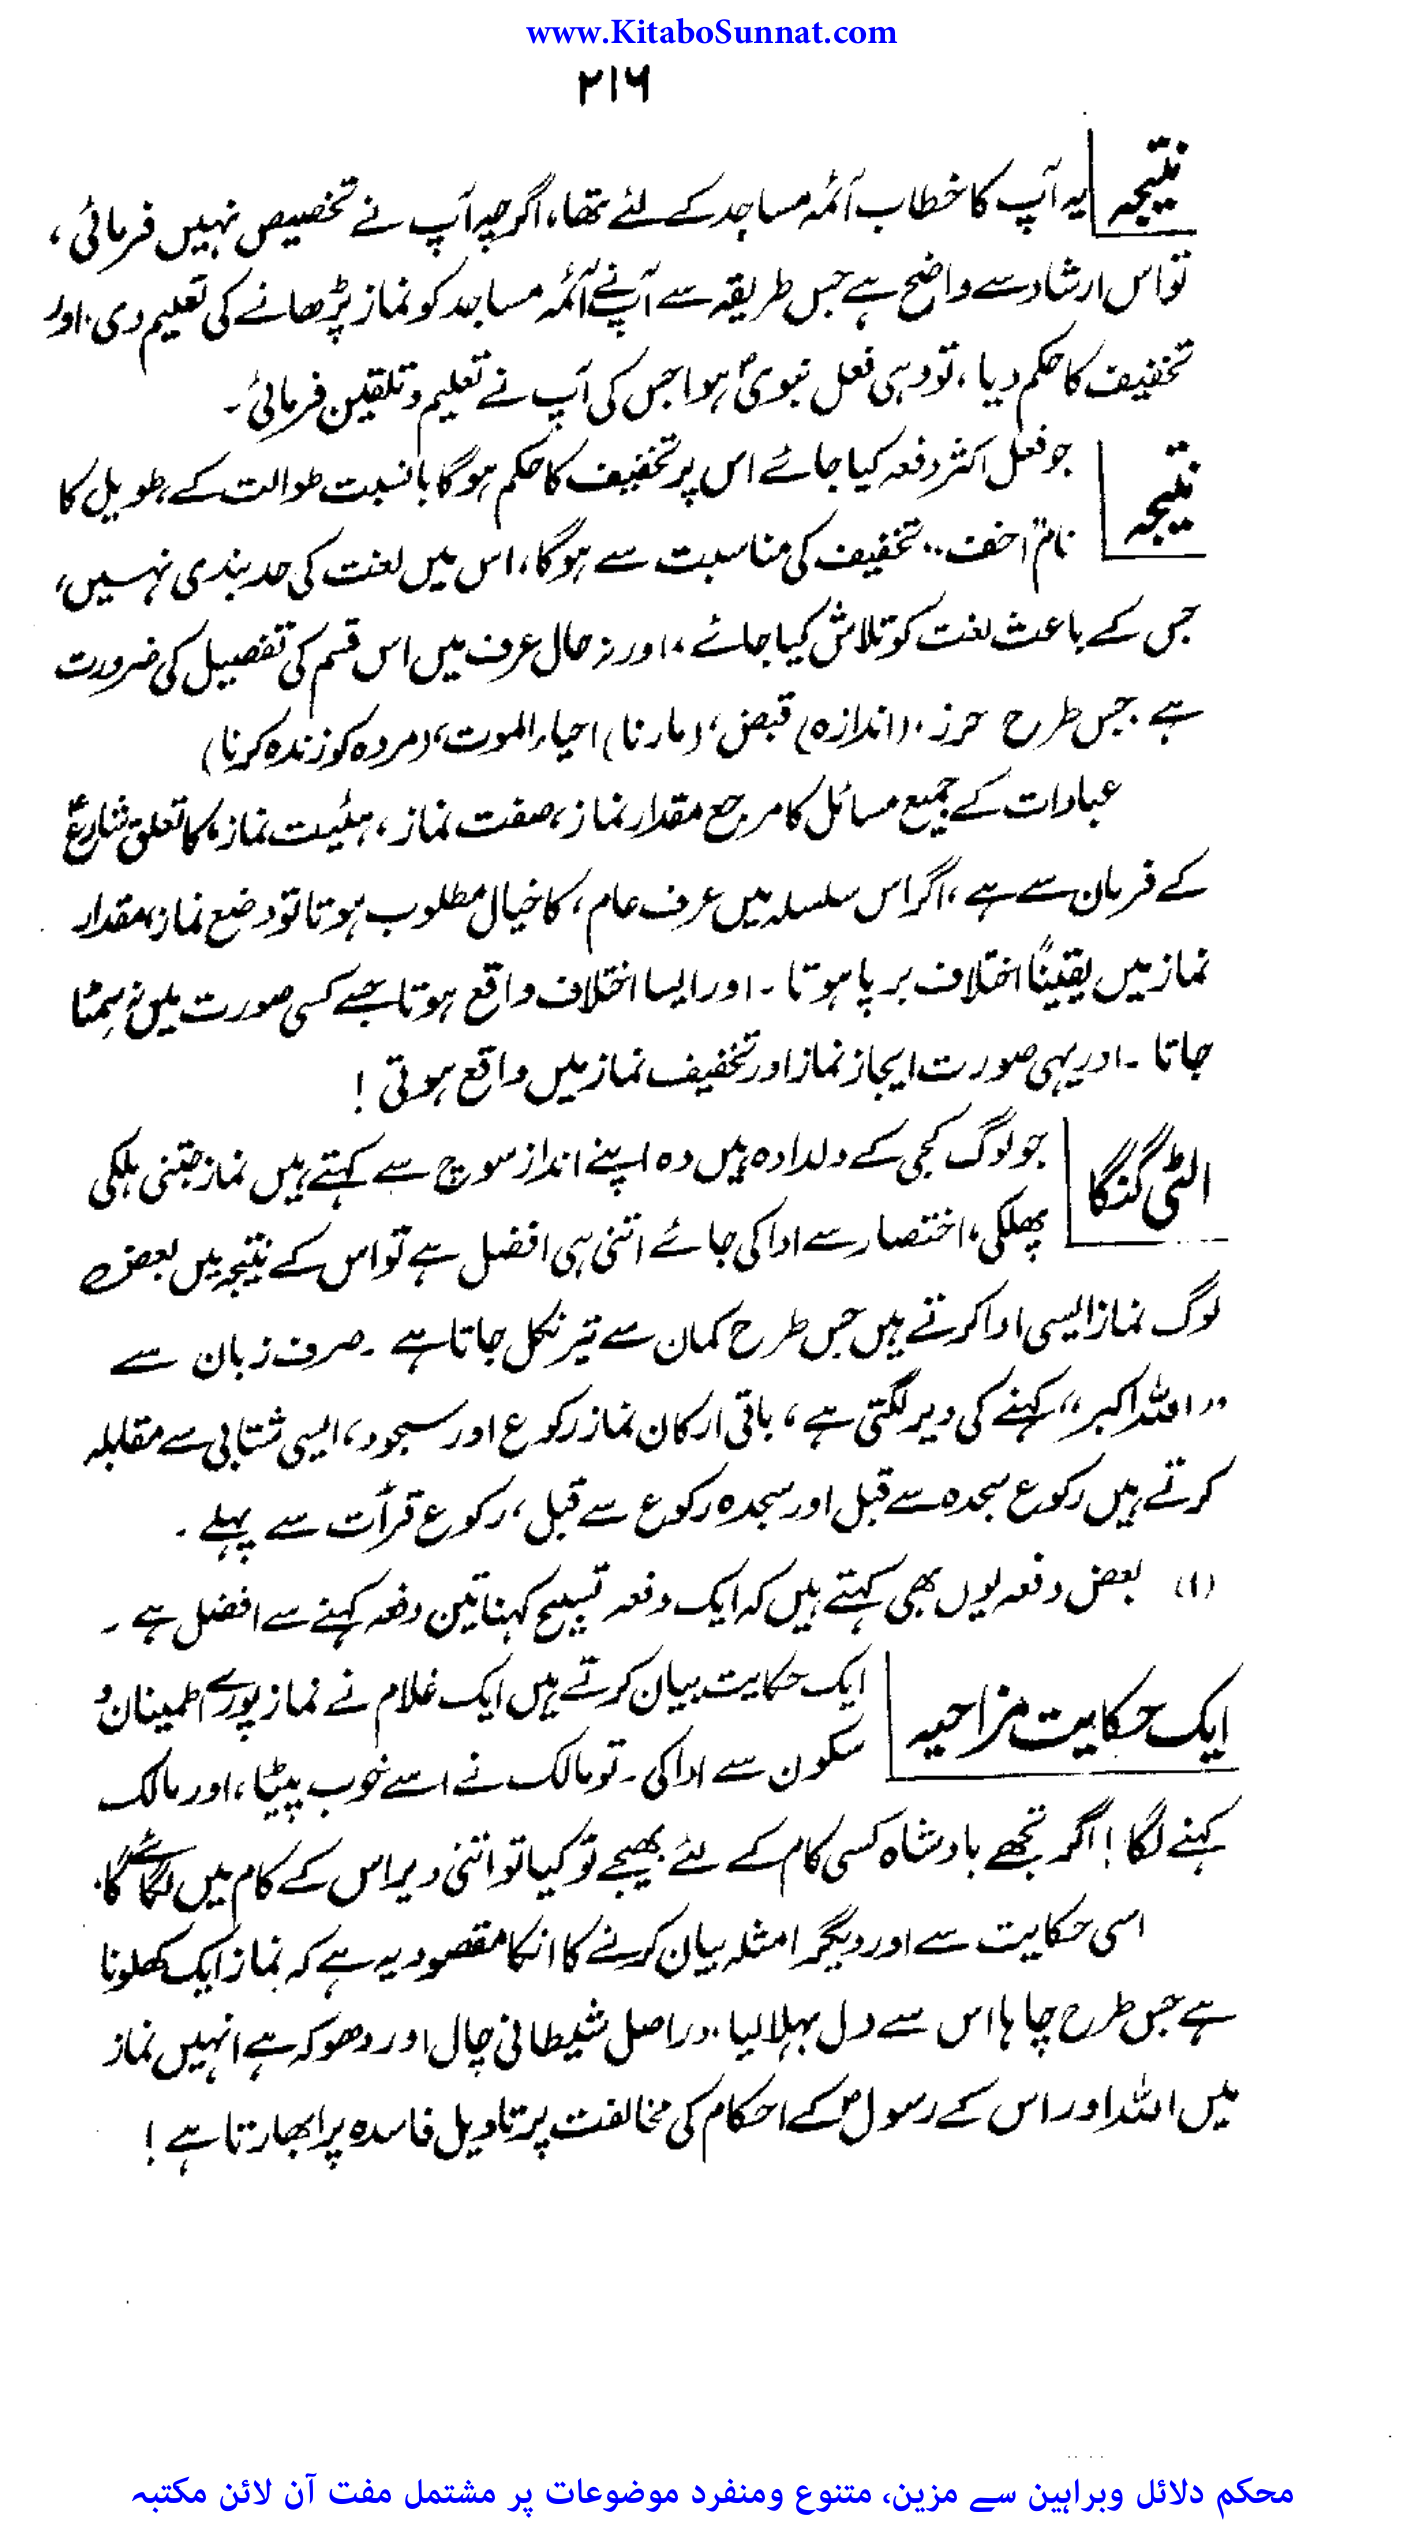 www.KitaboSunnat.com
۲۱۶
نتیجہ
یہ آپ کا خطاب آئمہ مساجد کے لئے تھا، اگرچہ آپ نے تخصیص نہیں فرمائی،
تو اس ارشاد سے واضح ہے جس طریقہ سے آپ نے آئمہ مساجد کو نماز پڑھانے کی تعلیم دی۔ اور
تخفیف کا حکم دیا، تو وہی فعل نبویؐ ہوا جس کی آپ نے تعلیم و تلقین فرمائی۔
نتیجہ
جو فعل اکثر دفعہ کیا جائے اس پر تخفیف کا حکم ہوگا بانسبت طوالت کے، طویل کا
نام اخف،، تخفیف کی مناسبت سے ہوگا، اس میں لغت کی حد بندی نہیں،
جس کے باعث لغت کو تلاش کیا جائے، اور نہ حال عرف میں اس قسم کی تفصیل کی ضرورت
ہے۔ جس طرح حرز، (اندازہ) قبض، (مارنا) احیاء الموت، (مردہ کو زندہ کرنا)
عبادات کے جمیع مسائل کا مرجع مقدار نماز، صفت نماز، ہئیت نماز، کا تعلق شارعؑ
کے فرمان سے ہے، اگر اس سلسلہ میں عرف عام، کا خیال مطلوب ہوتا تو وضع نماز، مقدار
نماز میں یقیناً اختلاف برپا ہوتا۔ اور ایسا اختلاف واقع ہوتا جسے کسی صورت میں نہ سمٹا
جاتا۔ اور یہی صورت ایجاز نماز اور تخفیف نماز میں واقع ہوتی!
الٹی گنگا
جو لوگ کجی کے دلدادہ ہیں وہ اپنے انداز سوچ سے کہتے ہیں نماز جتنی ہلکی
پھلکی، اختصار سے ادا کی جائے اتنی ہی افضل ہے تو اس کے نتیجہ میں بعض
لوگ نماز ایسی ادا کرتے ہیں جس طرح کمان سے تیر نکل جاتا ہے۔ صرف زبان سے
،،اللہ اکبر،، کہنے کی دیر لگتی ہے، باقی ارکان نماز رکوع اور سجود، ایسی شتابی سے مقابلہ
کرتے ہیں رکوع سجدہ سے قبل اور سجدہ رکوع سے قبل، رکوع قرأت سے پہلے۔
(۱) بعض دفعہ یوں بھی کہتے ہیں کہ ایک دفعہ تسبیح کہنا تین دفعہ کہنے سے افضل ہے۔
ایک حکایت مزاحیہ
ایک حکایت بیان کرتے ہیں ایک غلام نے نماز پورے اطمینان و
سکون سے ادا کی۔ تو مالک نے اسے خوب پیٹا، اور مالک
کہنے لگا! اگر تجھے بادشاہ کسی کام کے لئے بھیجے تو کیا تو اتنی دیر اس کے کام میں لگائے گا۔
اسی حکایت سے اور دیگر امثلہ بیان کرنے کا انکا مقصود یہ ہے کہ نماز ایک کھلونا
ہے جس طرح چاہا اس سے دل بہلا لیا۔ دراصل شیطانی چال اور دھوکہ ہے انہیں نماز
میں اللہ اور اس کے رسولؐ کے احکام کی مخالفت پر تاویل فاسدہ پر ابھارتا ہے!
محکم دلائل وبراہین سے مزین، متنوع ومنفرد موضوعات پر مشتمل مفت آن لائن مکتبہ